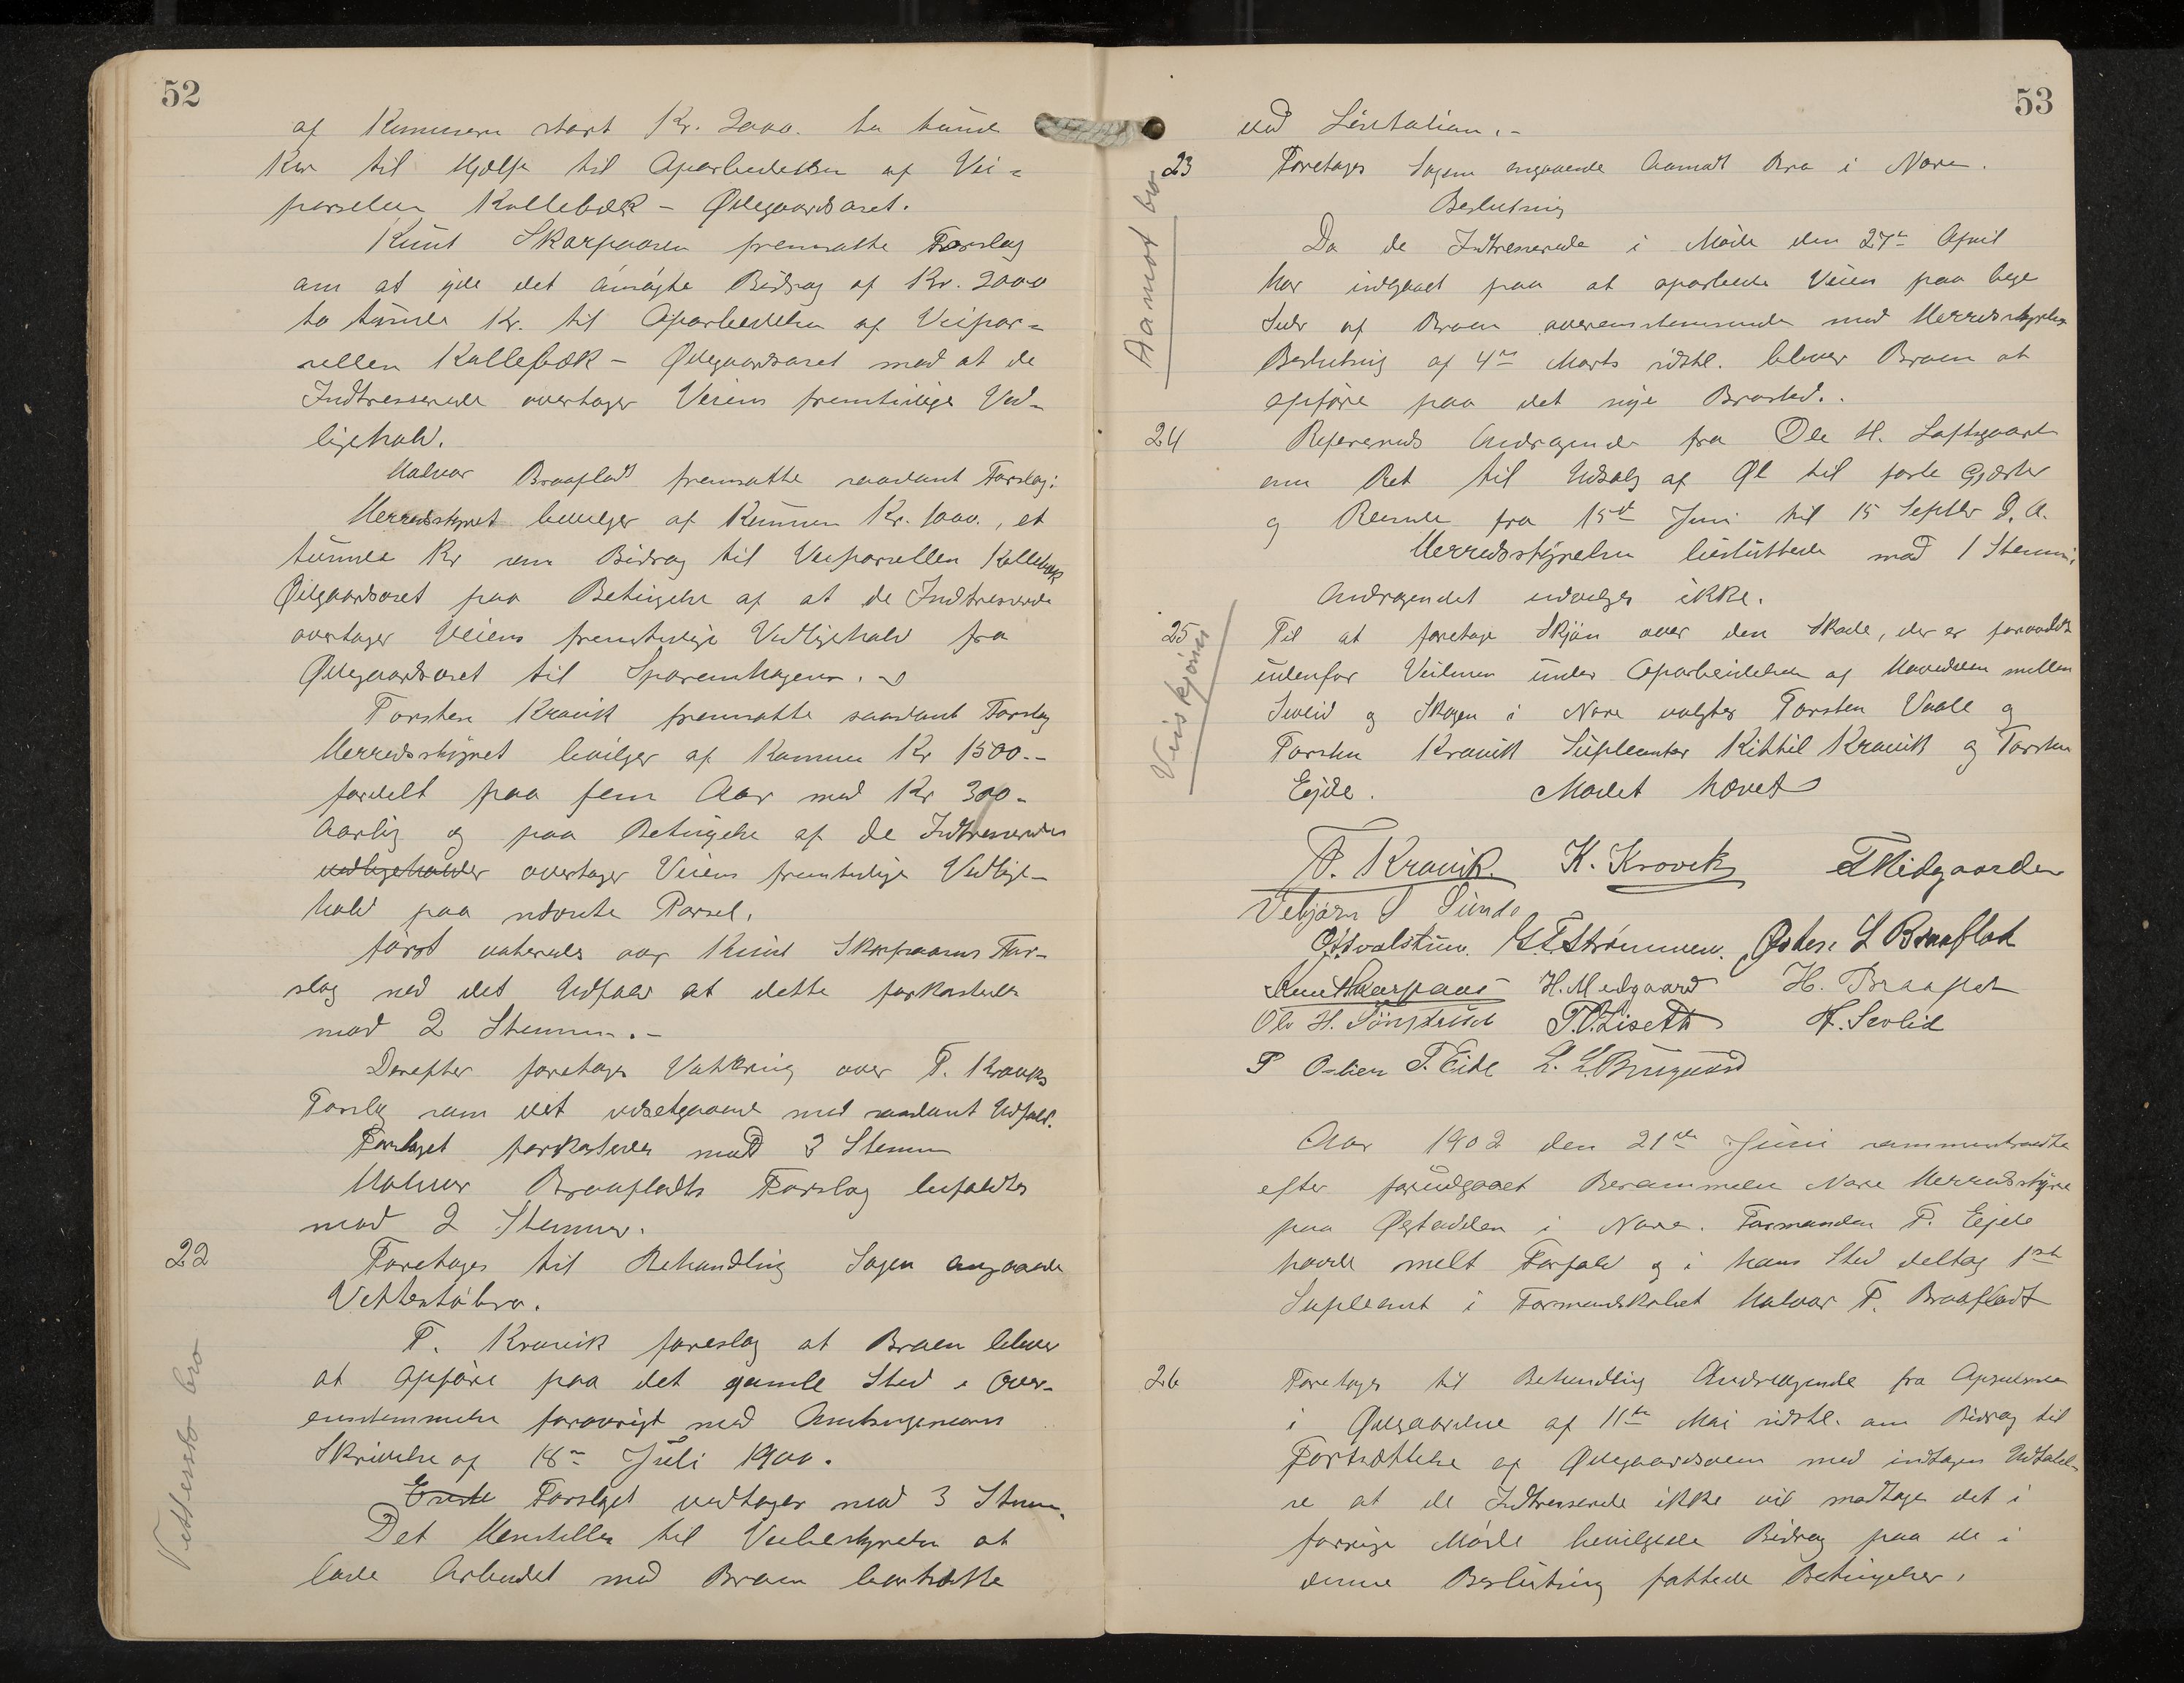 52
af Kommunen stort Kr. 2000. to tusen
Kr til Hjælp til Oparbeidelsen af Vei-
parselen Kallebæk - Ødegaardsaret.
Knut Skarpaasen fremsatte Forslag
om at yde det ansøgte Bidrag af Kr. 2000
to tusinde Kr. til Oparbeidelsen af Veipar-
sellen Kallebæk - Ødegaardsaret mod at de
Indtresserede overtager Veiens fremtidige Ved-
ligehold.
Halvor Braafladt fremsatte saadant Forslag:
Herredsstyret bevilger af Kommunen Kr. 1000., et
tusinde Kr som Bidrag til Veiparsellen Kallebæk
Ødegaardsaret paa Betingelse af at de Indtresserede
overtager Veiens fremtidige Vedligehold fra
Ødegaardsaret til
Torsten Kravik fremsatte saadant Forslag
Herredsstyret bevilger af Kommunen Kr 1500.-
fordelt paa fem Aar med Kr 300-
Aarlig og paa Betingelse af de Indtresserede
vedligeholder overtager Veiens fremtidige Vedlige-
hold paa nævnte Parsel.
først voteredes over Knut Skarpaasens For-
slag med det Udfald at dette forkastedes
mod 2 Stemmer.-
Derefter foretages Vottering over T. Kraviks
Forslag som det næstgaaende med saadant Udfald.
Forslaget forkastedes mod 3 Stemmer
Halvor Braafladts Forslag bifaldtes
mod 2 Stemmer.
22
Foretages til Behandling Sagen angaaende
Vettestøbro.
T. Kravik foreslog at Broen bliver
at opføre paa det gamle Sted i Over-
ensstemmelse forøvrigt med Amtsingeniørens
Skrivelse af 18de Juli 1900.
Forslaget vedtages mod 3 Stemmer.
Det Henstilles til Veibestyrelsen at
lade Arbeidet med Broen bortsætte
Vettestø bro
53
ved Lisitation.-
23
Foretages Sagen angaaende Aamodt Bro i Nore.
Beslutning
Da de Indtresserede i Møde den 27de April
har indgaaet paa at oparbeide Veien paa begge
Sider af Broen overensstemmende med Herredsstyrets
Beslutning af 4de Marts sidstl. bliver Broen at
opføre paa det nye Brosted..
Aamodt bro
24
Refereredes Andragende fra Ole H. Loftsgaard
om Ret til Udsalg af Øl til faste Gjæster
og Reisende fra 15de Juni til 15 Septbr d. A.
Herredsstyrelsen besluttede mod 1 Stemme,
Andragendet indvilges ikke.
25
Til at foretage Skjøn over den Skade, der er forvoldt
udenfor Veilinien under Oparbeidelsen af Hovedveien mellem
Sevlid og Skogen i Nore valgtes Torsten Vaale og
Torsten Kravik Supleanter Kittil Kravik og Torsten
Eide. Mødet hævet
Veiskjøner
T. Kravik. K. Kravik T Midgaarden
Vebjørn S Sunde
G.T. Strømmen. Østen L Braaflat
Knut Skarpaas H. Medgaard H. Braaflat
Ole H. T.O. Liseth H. Sevlid
P Oslien T. Eide L. L. Bruguard
Aar 1902 den 21de Juni sammentraadte
efter forudgaaet Berammelse Nore Herredsstyre
paa Øigstadden i Nore. Formanden T. Eide
havde melt Forfald og i hans Sted deltog 1ste
Supleant i Formandskabet Halvor T. Braafladt
26
Foretages til Behandling Andragende fra Opsiderne
i Ødegaardene af 11te Mai sidstl. om Bidrag til
Fortsættelse af Ødegaardsveien med indtagen Udtalel-
se at de Indtresserede ikke vil modtage det i
forrige Møde bevilgede Bidrag paa de i
denne Beslutning fattede Betingelser.